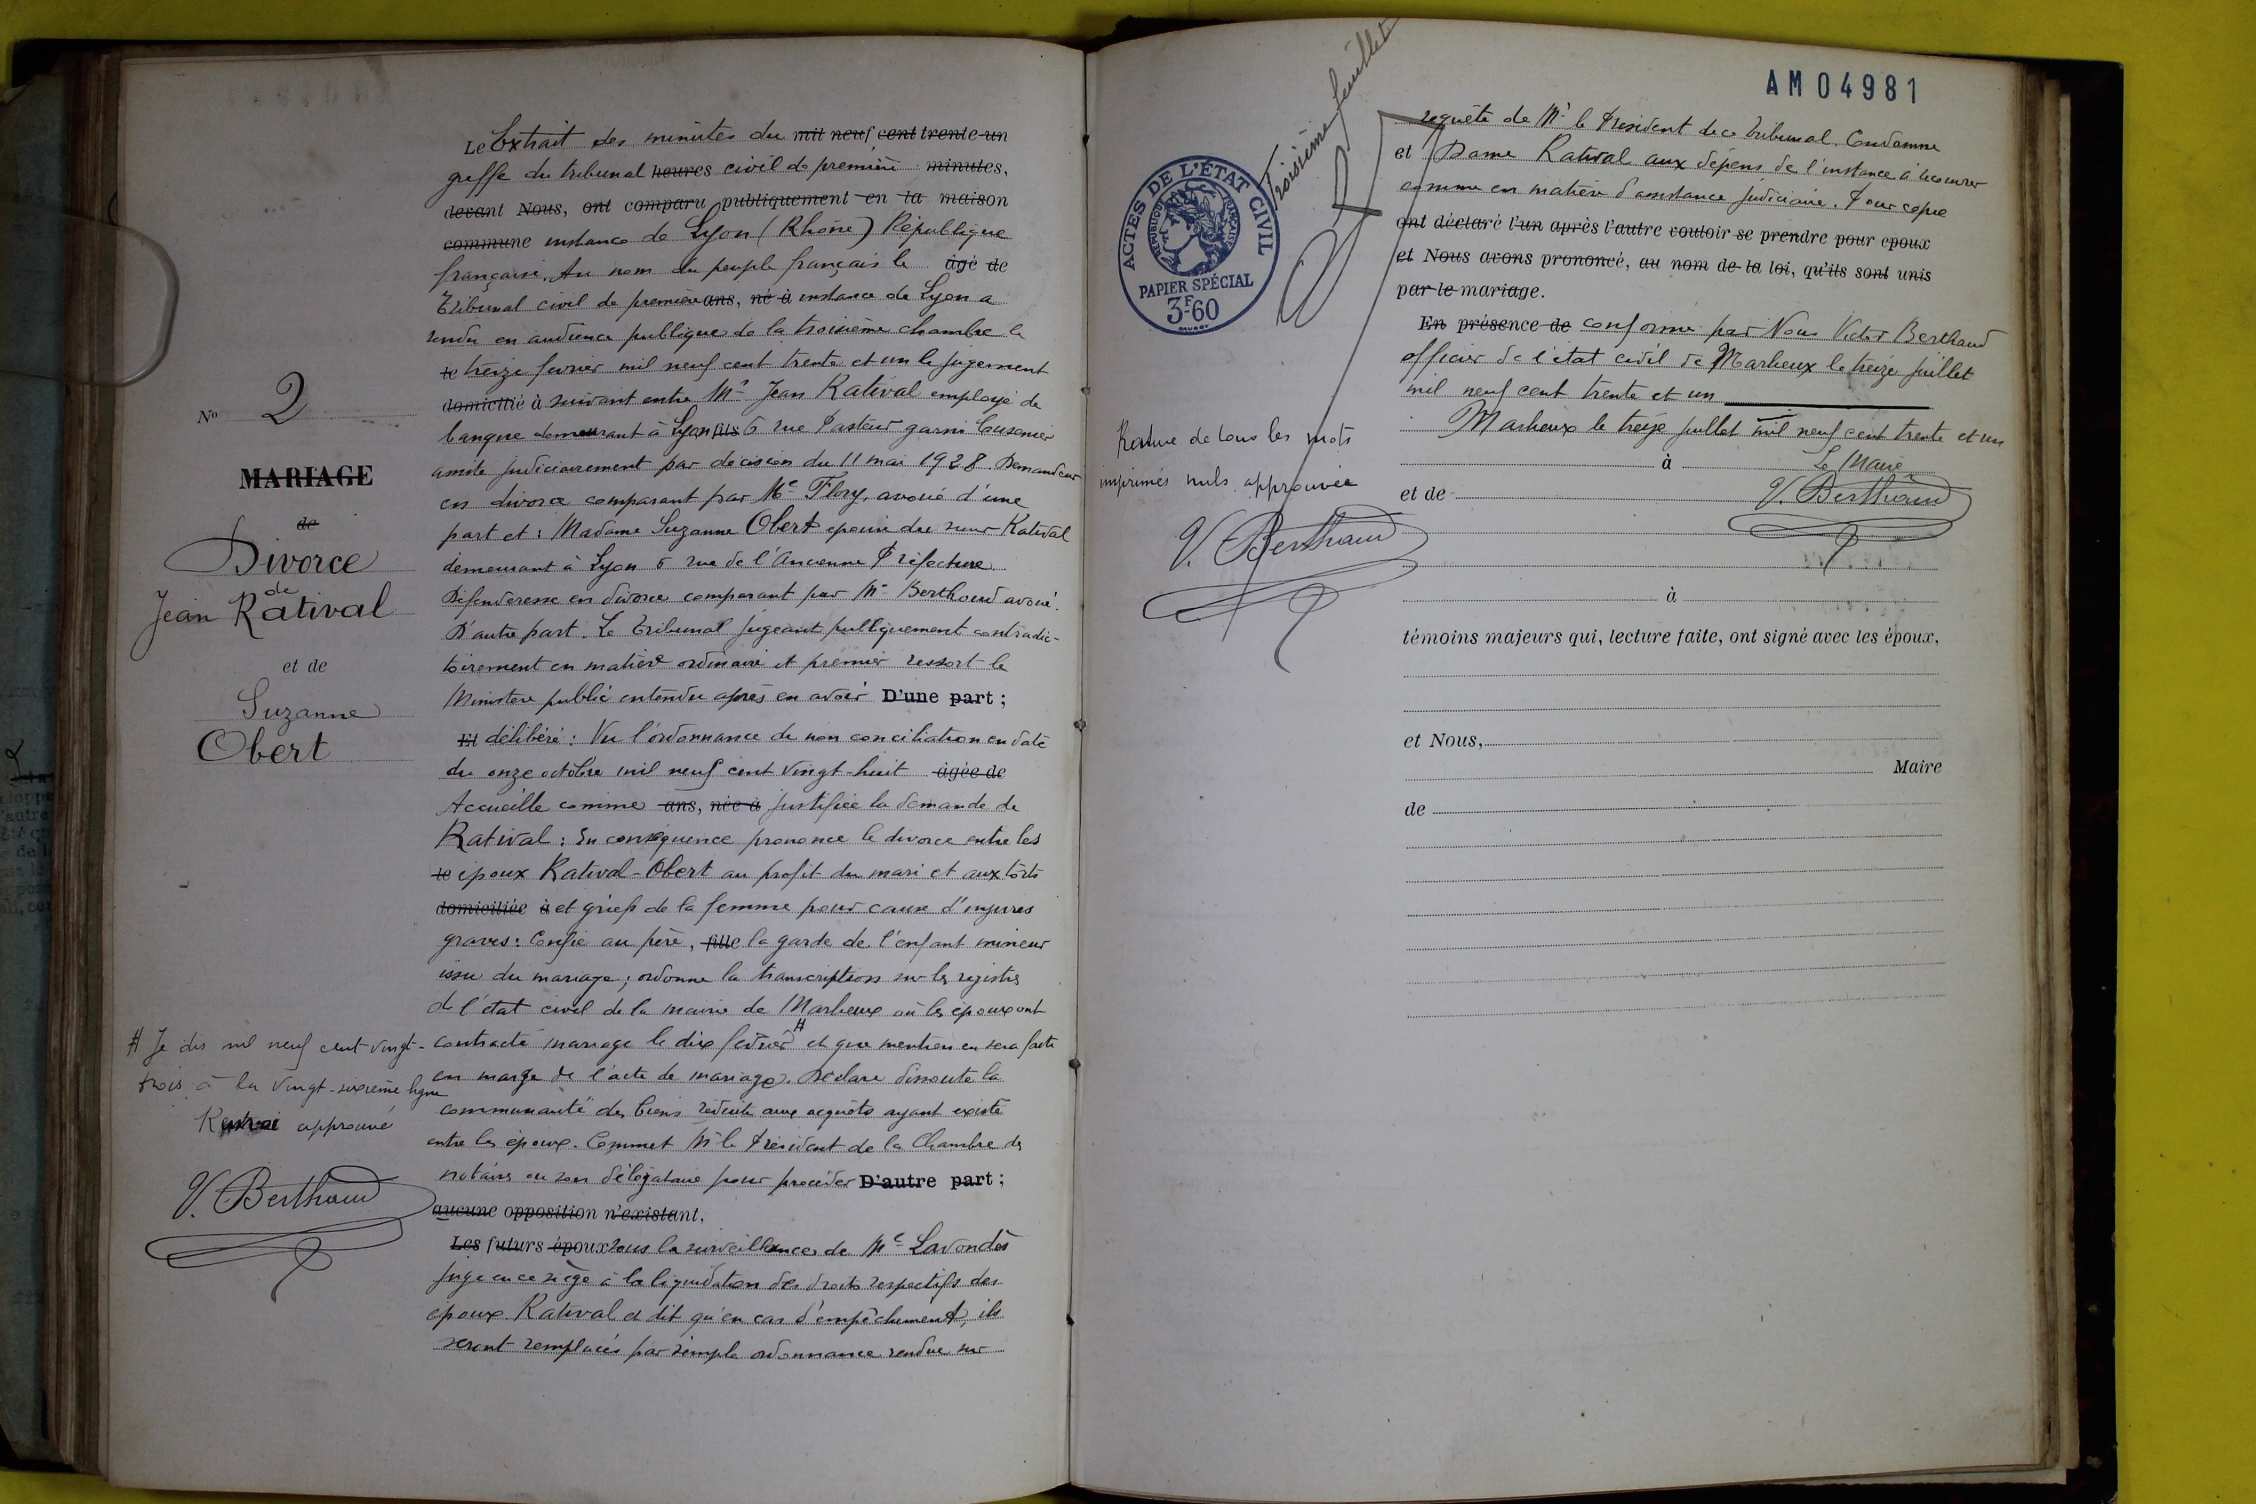 N° 2
MARIAGE
de
Divorce
de
Jean Ratival
et de
Suzanne
Obert
# Je dis mil neuf cent vingt-
trois à la vingt-sixième ligne
Renvoi approuvé
V. Berthaud
Le Extrait des minutes du mil neuf cent trente-un
greffe du tribunal heures civil de première minutes,
devant Nous, ont comparu publiquement en la maison
commune instance de Lyon (Rhône) République
française. Au nom du peuple français le âgé de
Tribunal civil de première ans, né à instance de Lyon a
rendu en audience publique de la troisième chambre le
le treize février mil neuf cent trente et un le jugement
domicilié à suivant entre Mr Jean Ratival employé de
banque demeurant à Lyon fils 6 rue Pasteur garni Cusenier
assisté judiciairement par décision du 11 mai 1928. Demandeur
en divorce comparant par Me Flory, avoué d'une
part et : Madame Suzanne Obert épouse du sieur Ratival
demeurant à Lyon 5 rue de l'Ancienne Préfecture
Défenderesse en divorce comparant par Me Berthoud avoué.
D'autre part. Le Tribunal jugeant publiquement contradic-
toirement en matière ordinaire et premier ressort le
Ministère public entendu après en avoir D'une part ;
Et délibéré : Vu l'ordonnance de non conciliation en date
du onze octobre mil neuf cent vingt-huit âgée de
Accueille comme ans, née à justifiée la demande de
Ratival : En conséquence prononce le divorce entre les
le époux Ratival-Obert au profit du mari et aux torts
domiciliée à et griefs de la femme pour cause d'injures
graves : Confie au père, fille la garde de l'enfant mineur
issu du mariage ; ordonne la transcription sur les registres
de l'état civil de la mairie de Marlieux où les époux ont
contracté mariage le dix février # et que mention en sera faite
en marge de l'acte de mariage. Déclare dissoute la
communauté des biens réduite aux acquêts ayant existé
entre les époux. Commet Mr le Président de la Chambre des
notaires ou son délégataire pour procéder D'autre part ;
aucune opposition n'existant.
Les futurs époux sous la surveillance de Me Lavondès
juge en ce siège à la liquidation des droits respectifs des
époux Ratival et dit qu'en cas d'empêchement, ils
seront remplacés par simple ordonnance rendue sur
Troisième feuillet
AM04981
ACTES DE L'ÉTAT CIVIL
RÉPUBLIQUE FRANÇAISE
PAPIER SPÉCIAL
3F60
requête de Mr le Président de ce Tribunal. Condamne
et Dame Ratival aux dépens de l'instance à recouvrer
comme en matière d'assistance judiciaire. Pour copie
ont déclaré l'un après l'autre vouloir se prendre pour époux
et Nous avons prononcé, au nom de la loi, qu'ils sont unis
par le mariage.
En présence de conforme par Nous Victor Berthaud
officier de l'état civil de Marlieux le treize juillet
mil neuf cent trente et un
Marlieux le treize juillet mil neuf cent trente et un
à Le Maire
et de V. Berthaud
Rature de tous les mots
imprimés nuls approuvée
V. Berthaud
à
témoins majeurs qui, lecture faite, ont signé avec les époux,
et Nous,
Maire
de